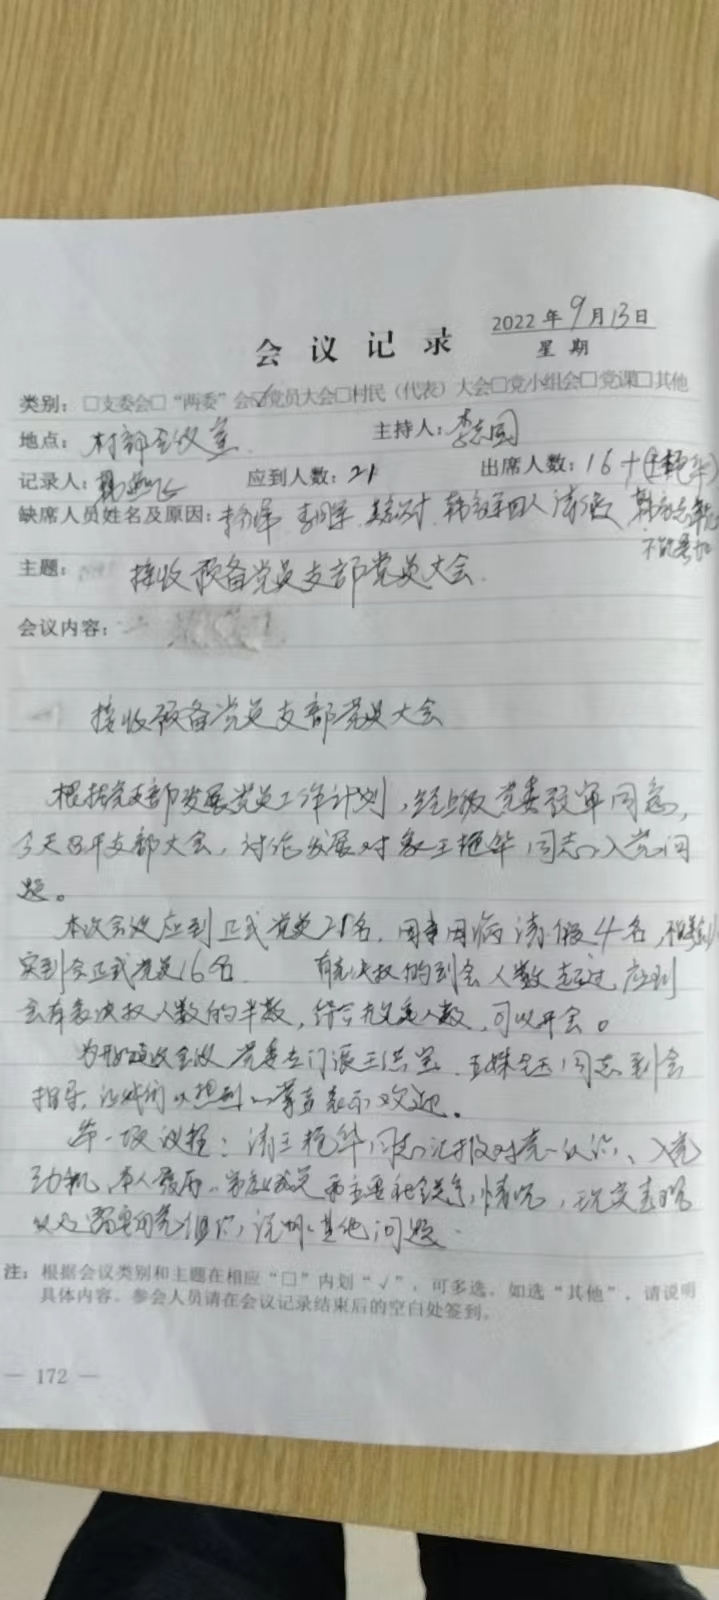 2022年9月13日
会议记录
星期
类别：□支委会□“两委”会☑党员大会□村民（代表）大会□党小组会□党课□其他
地点：村部会议室 主持人：李志国
记录人： 应到人数：21 出席人数：16+(王艳华)
缺席人员姓名及原因： 四人请假
不能参加
主题：接收预备党员支部党员大会
会议内容：
接收预备党员支部党员大会
根据党支部发展党员工作计划，经上级党委预审同意，
今天召开支部大会，讨论发展对象王艳华同志入党问
题。
本次会议应到正式党员21名，因事因病请假4名，
实到会正式党员16名 有表决权的到会人数超过应到
会有表决权人数的半数，符合 人数，可以开会。
为开好这次会议党委专门派王 同志到会
指导，让我们以热烈的掌声表示欢迎。
第一项议程：请王艳华同志汇报对党的认识、入党
动机、本人履历、家庭成员和主要社会关系情况，现实表现
以及需要向党组织说明的其他问题
注：根据会议类别和主题在相应“□”内划“√”，可多选。如选“其他”，请说明
具体内容。参会人员请在会议记录结束后的空白处签到。
— 172 —